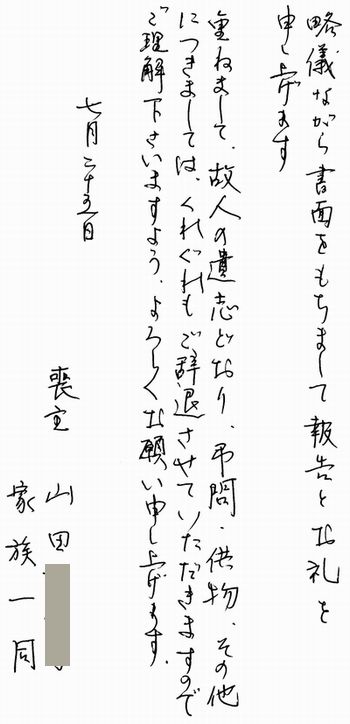 略儀ながら書面をもちまして報告とお礼を
申し上げます
重ねまして、故人の遺志どおり、弔問・供物、その他
につきましては、くれぐれもご辞退させていただきますので
ご理解下さいますよう、よろしくお願い申し上げます。
七月二十五日
喪主 山田
家族一同